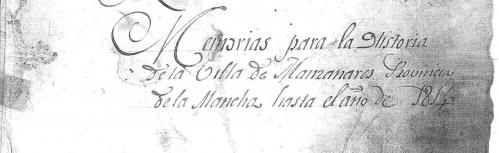 Memorias para la Historia
de la Villa de Manzanares Provincia
de la Mancha hasta el año de 1814